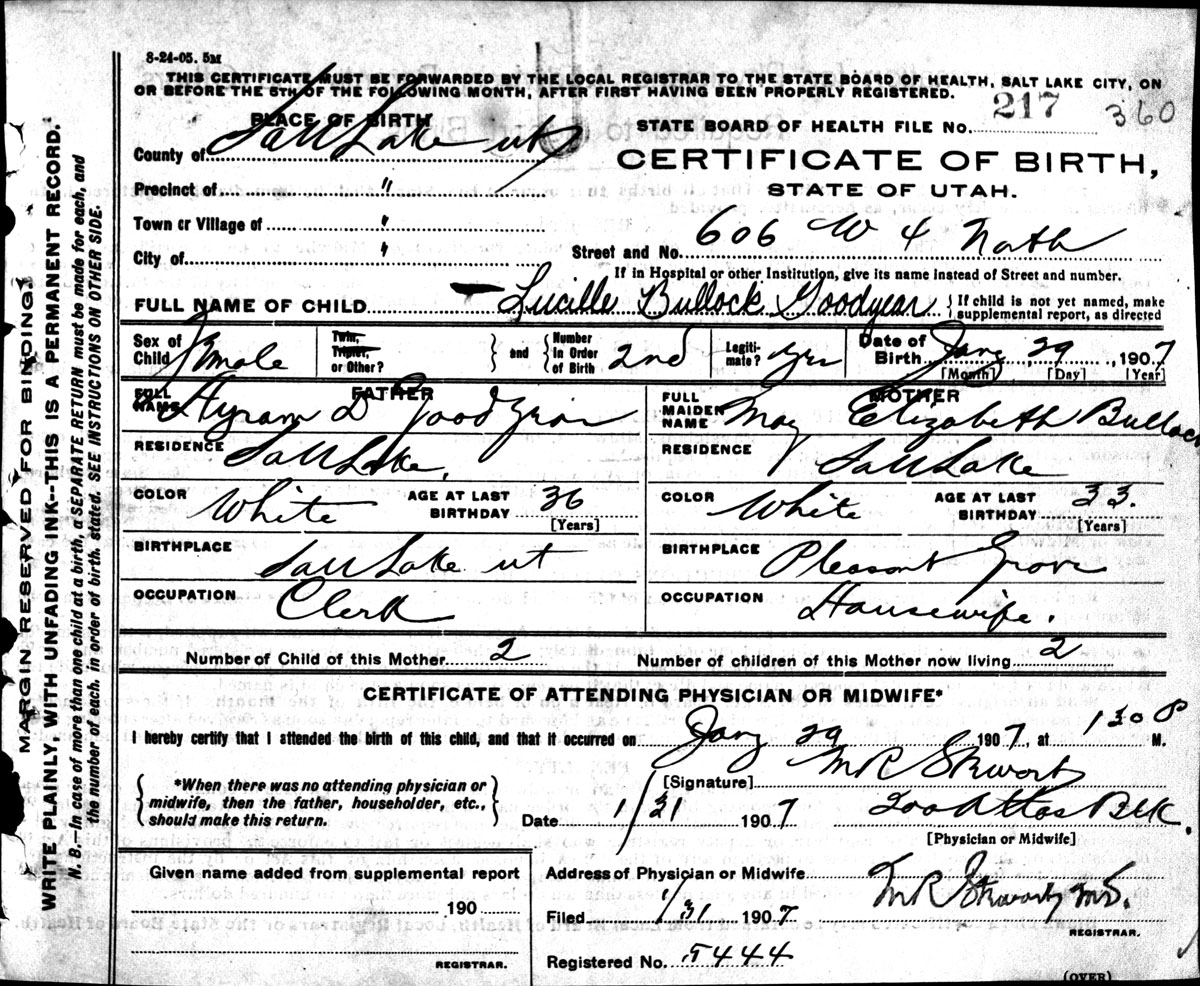 8-24-05. 5M
THIS CERTIFICATE MUST BE FORWARDED BY THE LOCAL REGISTRAR TO THE STATE BOARD OF HEALTH, SALT LAKE CITY, ON
OR BEFORE THE 5TH OF THE FOLLOWING MONTH, AFTER FIRST HAVING BEEN PROPERLY REGISTERED.
217 360
PLACE OF BIRTH
STATE BOARD OF HEALTH FILE No.
County of Salt Lake ut
CERTIFICATE OF BIRTH,
STATE OF UTAH.
Precinct of "
Town or Village of "
City of "
Street and No. 606 W 4 North
If in Hospital or other Institution, give its name instead of Street and number.
FULL NAME OF CHILD Lucille Bullock Goodyear { If child is not yet named, make
supplemental report, as directed
Sex of Child Female
Twin, Triplet, or Other? } and { Number in Order of Birth 2nd
Legitimate? yes
Date of Birth Jany 29, 1907
[Month] [Day] [Year]
FATHER
FULL NAME Hyram D Goodyear
RESIDENCE Salt Lake,
COLOR White AGE AT LAST BIRTHDAY 36
[Years]
BIRTHPLACE Salt Lake ut
OCCUPATION Clerk
MOTHER
FULL MAIDEN NAME May Elizabeth Bullock
RESIDENCE Salt Lake
COLOR White AGE AT LAST BIRTHDAY 33.
[Years]
BIRTHPLACE Pleasant Grove
OCCUPATION Housewife.
Number of Child of this Mother 2 Number of children of this Mother now living 2
CERTIFICATE OF ATTENDING PHYSICIAN OR MIDWIFE*
I hereby certify that I attended the birth of this child, and that it occurred on Jany 29 1907, at 1 30 P M.
{ *When there was no attending physician or
midwife, then the father, householder, etc.,
should make this return. }
[Signature] M R Stewart
Date 1/31 1907
[Physician or Midwife]
Given name added from supplemental report
190
REGISTRAR.
Address of Physician or Midwife
Filed 1/31 1907 M R Stewart M.D.
REGISTRAR.
Registered No. 5444
(OVER)
MARGIN RESERVED FOR BINDING.
WRITE PLAINLY, WITH UNFADING INK--THIS IS A PERMANENT RECORD.
N. B.--In case of more than one child at a birth, a SEPARATE RETURN must be made for each, and
the number of each, in order of birth, stated. SEE INSTRUCTIONS ON OTHER SIDE.